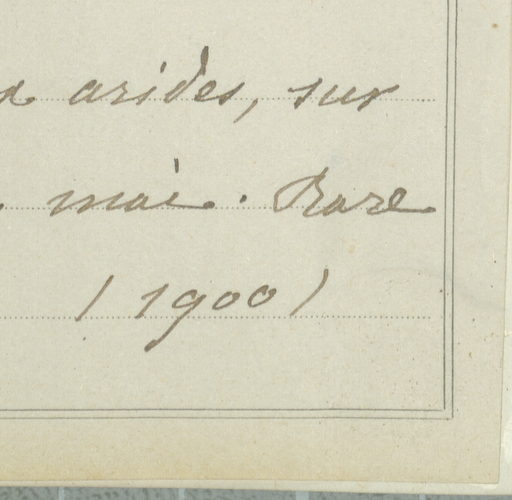 x arides, sur
. mai. Rare
(1900)